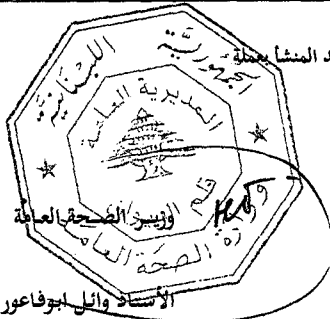 د المنشأ بعملة
الجمهورية اللبنانية
المديرية العامة
وزارة الصحة العامة
وزير الصحة العامة
الأستاذ وائل ابوفاعور